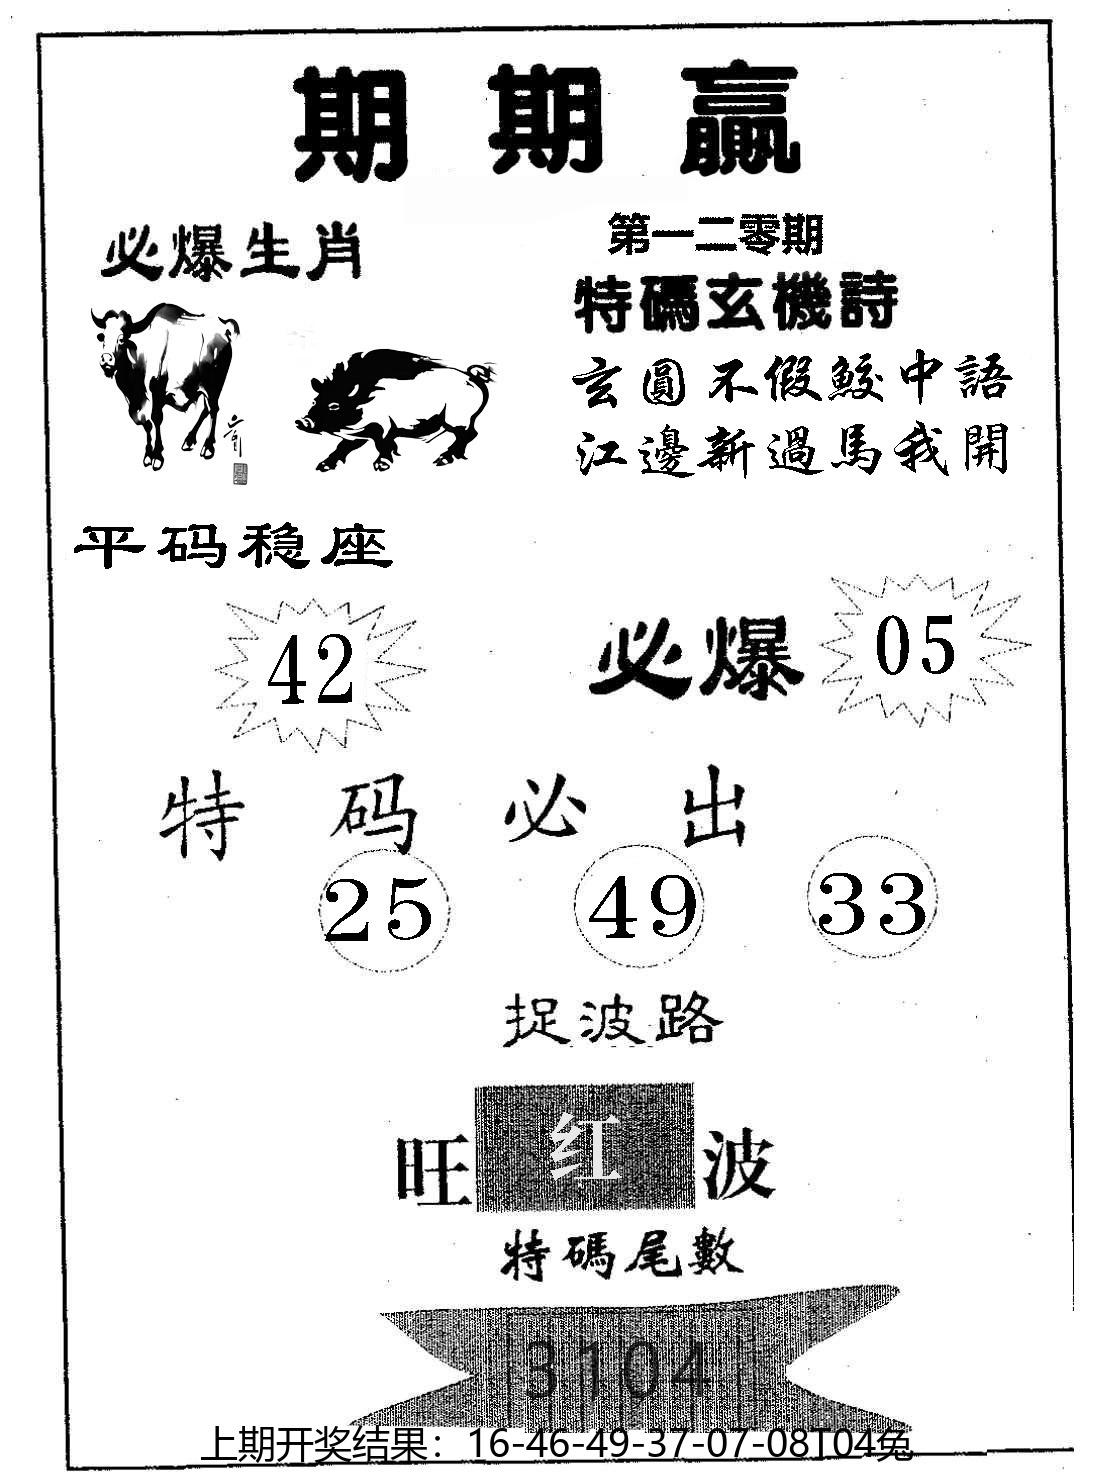 期期贏
必爆生肖
第一二零期
特碼玄機詩
玄圓不假鮫中語
江邊新過馬我開
平码稳座
42
必爆 05
特码必出
25 49 33
捉波路
旺红波
特碼尾數
3104
上期开奖结果：16-46-49-37-07-08T04兔